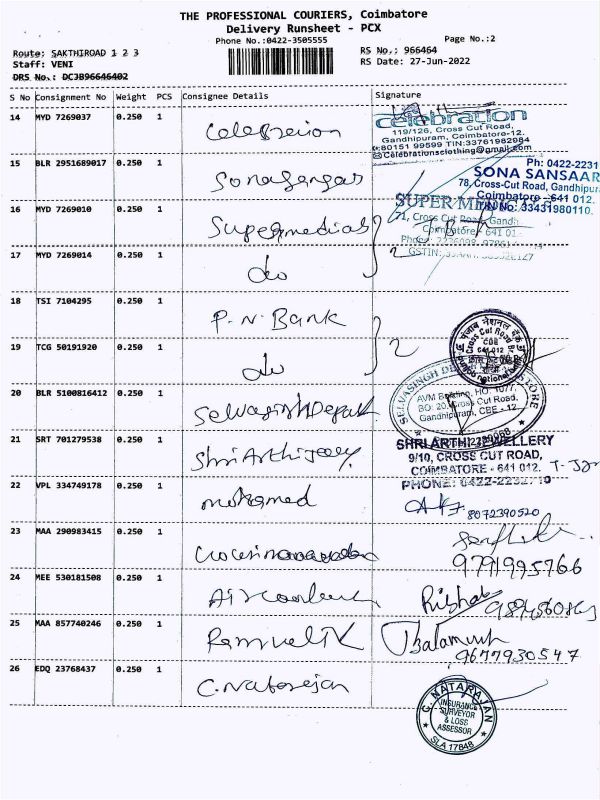 THE PROFESSIONAL COURIERS, Coimbatore
Delivery Runsheet - PCX
Phone No.:0422-3505555 Page No.:2
Route: SAKTHIROAD 1 2 3 RS No.; 966464
Staff: VENI RS Date: 27-Jun-2022
DRS No.: DCJB96646402
S No Consignment No Weight PCS Consignee Details Signature
14 MYD 7269037 0.250 1
celebration
119/126, Cross Cut Road,
Gandhipuram, Coimbatore-12.
80151 99599 TIN:33761982984
Celebrationsclothing@gmail.com
15 BLR 2951689017 0.250 1
Ph: 0422-2231
SONA SANSAAR
78, Cross-Cut Road, Gandhipura
Coimbatore - 641 012.
TIN No: 33431980110.
16 MYD 7269010 0.250 1 Supermedicals
SUPER
71, Cross Cut Road, Gandhi
Coimbatore - 641 01
17 MYD 7269014 0.250 1 do 2
18 TSI 7104295 0.250 1 P.N. Bank
19 TCG 50191920 0.250 1 do 2
पंजाब नेशनल बैंक
Cross Cut Road Br.
CBE
641 012
punjab national bank
20 BLR 5100816412 0.250 1
SELVASINGH DE STORE
AVM Building, HO: 1077,
BO: 20, Cross Cut Road,
Gandhipuram, CBE - 12
21 SRT 701279538 0.250 1
SHRI ARTHI JEWELLERY
9/10, CROSS CUT ROAD,
COIMBATORE - 641 012.
PHONE: 0422-2232
22 VPL 334749178 0.250 1 mohamed 8072390520
23 MAA 290983415 0.250 1
9791995766
24 MEE 530181508 0.250 1 Rishab
25 MAA 857740246 0.250 1 Balamurugan
9677930547
26 EDQ 23768437 0.250 1 C. Natarajan
C. NATARAJAN
INSURANCE
SURVEYOR
& LOSS
ASSESSOR
SLA 17848